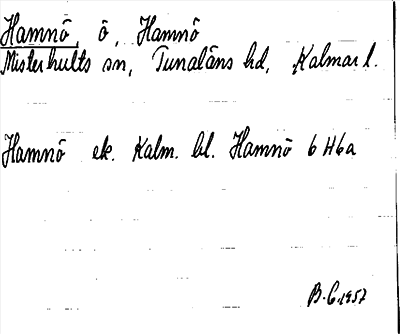 Hamnö, ö, Hamnö
Misterhults sn, Tunaläns hd, Kalmar l.
Hamnö ek. Kalm. bl. Hamnö 6 H6a
B.C. 1957